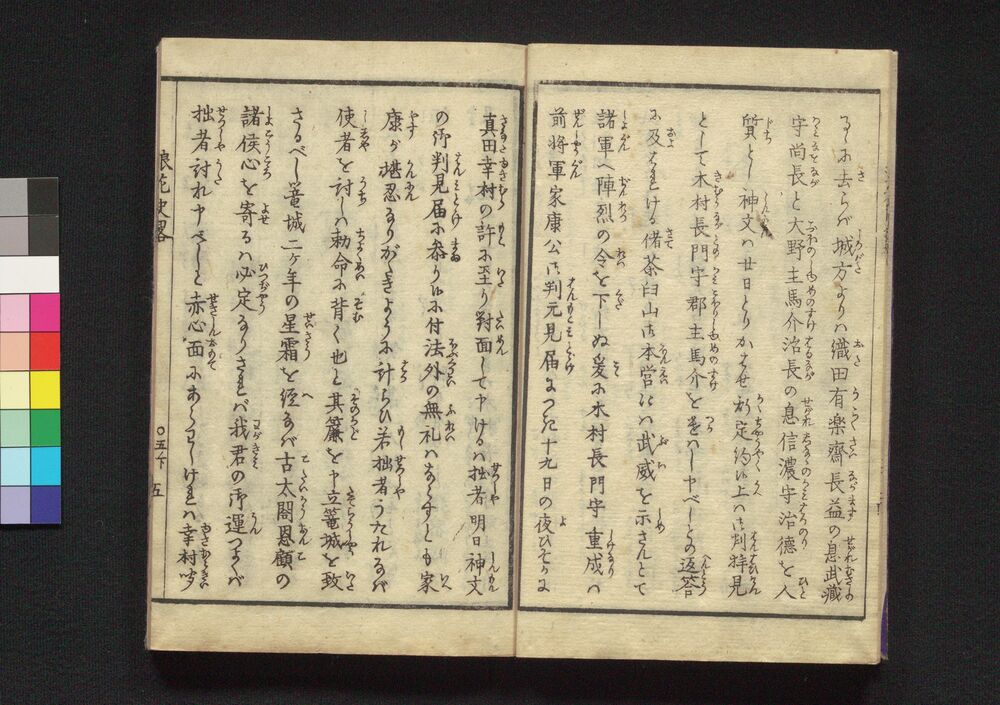 るに去らバ城方よりハ織田有楽齋長益の息武藏
守尚長と大野主馬介治長の息信濃守治德を人
質とし神文ハ廿日とりかハせ新定約は上ハ御判拜見
として木村長門守郡主馬介を遣ハし申べしとの返答
に及ばれける偖茶臼山御本営にハ武威を示さんとて
諸軍へ陣烈の令を下しぬ爰に木村長門守重成ハ
前将軍家康公御判元見届につき十九日の夜ひそかに
真田幸村の許に至り對面して申けるハ拙者明日神文
の御判見届に参り候に付法外の無礼ハなさずとも家
康が堪忍なりがたきように計らひ若拙者うたれなバ
使者を討しハ勅命に背く也と其簾を申立篭城を致
さるべし篭城二ヶ年の星霜を經なバ古太閤恩顧の
諸侯心を寄るハ必定なりされバ我君の御運つよくバ
拙者討れ申べしと赤心面にあらはしけれハ幸村吟
浪花史畧
〇五ノ下
五